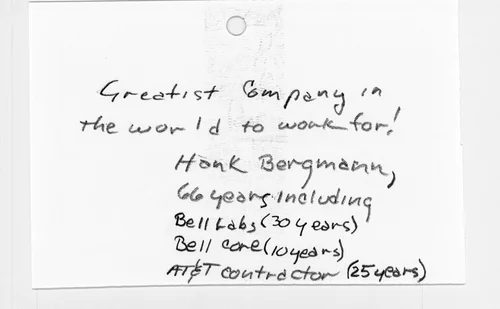 Greatist Company in
the world to work for!
Hank Bergmann,
66 years including
Bell Labs (30 years)
Bell core (10 years)
AT&T contractor (25 years)